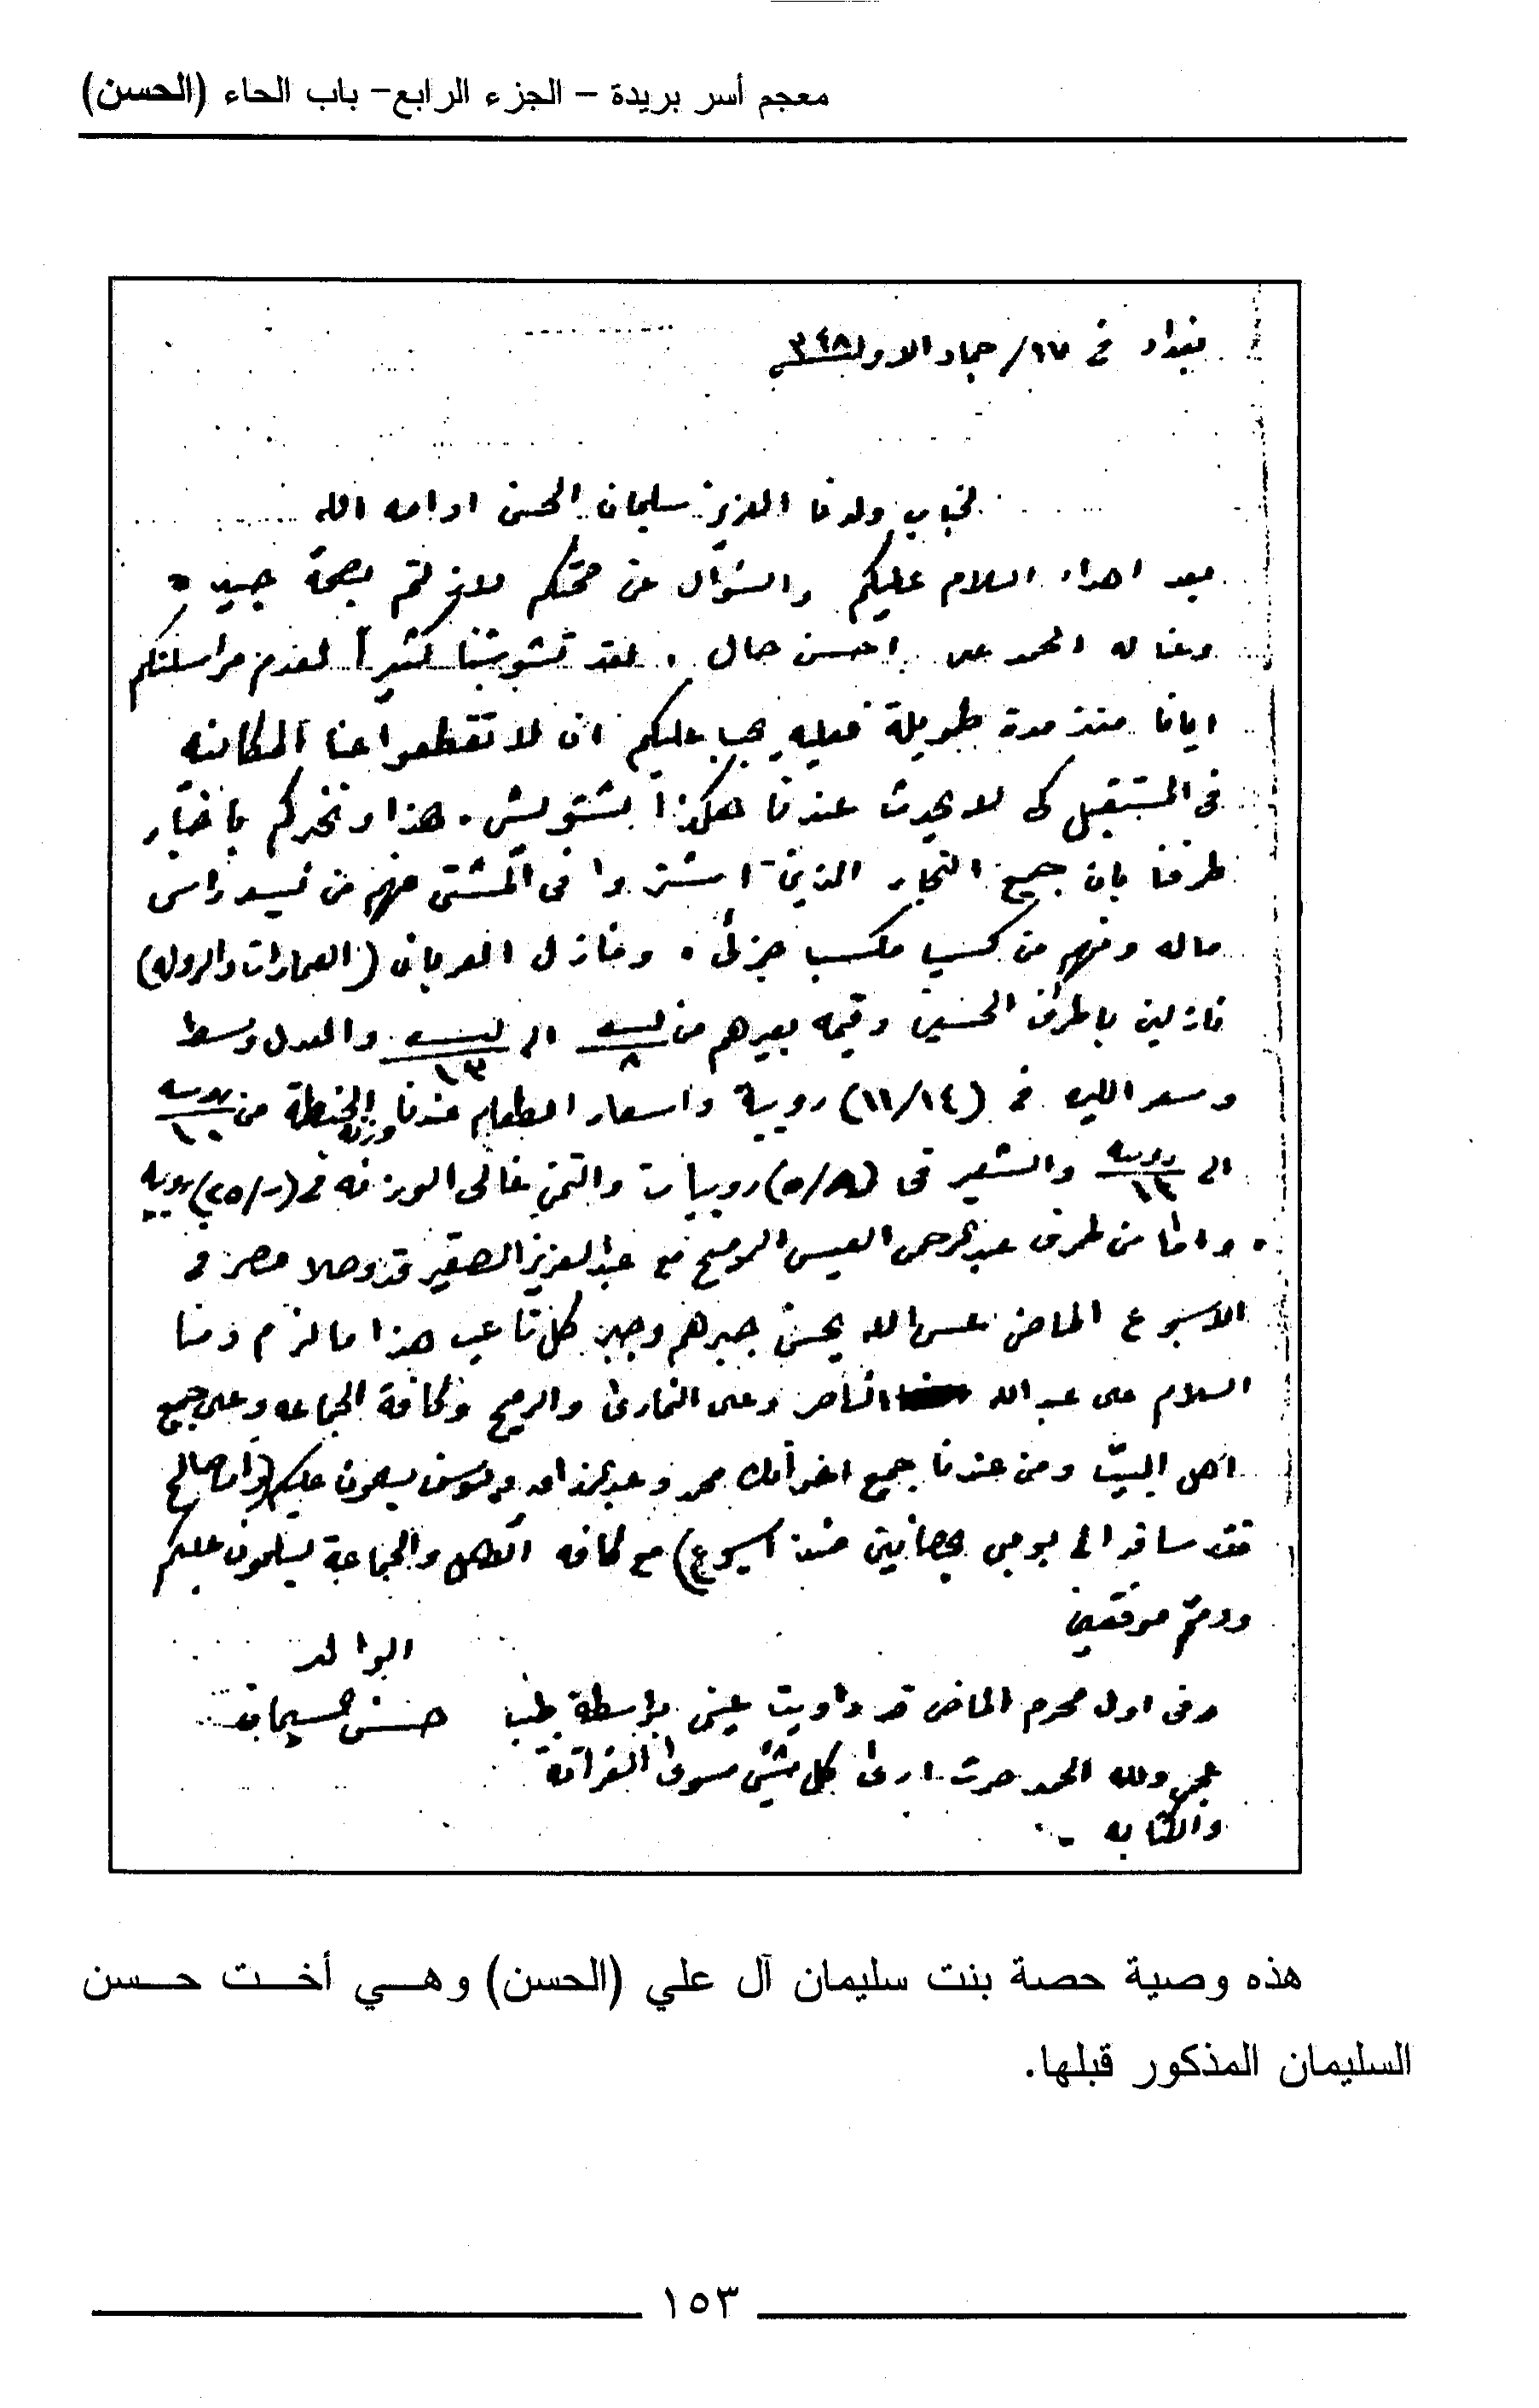 معجم أسر بريدة – الجزء الرابع– باب الحاء (الحسن)
بغداد في ١٧/ جماد الاول ٣٤٨
لجناب ولدنا العزيز سليمان الحسن ادامه الله
بعد اهداء السلام عليكم والسؤال عن صحتكم لازلتم بصحة جيده
وعنا له الحمد على احسن حال . لقد تشوشنا كثيراً لعدم مراسلتكم
ايانا منذ مدة طويلة فعليه يجب عليكم ان لا تقطعوا عنا المكاتبه
في المستقبل كي لا يحدث عندنا هكذا تشويش . هذا ونخبركم باخبار
طرفنا بان جميع التجار الذين اشتروا في المشتى منهم من راس
ماله ومنهم من كسب مكسب جزئي . ومنازل العربان (العمارات والروله)
نازلين باطراف الحسين وقيمة بعيرهم من ليره ٨ الى ليره ١٣ والمعدل وسط
وسعر الليره في (١١/١٤) روبية واسعار الطعام عندنا وزنة الحنطة من روبيه ١٠
الى روبيه ١٣ والشعير في (٥/٨) روبيات والتمن غالي الوزنه في (٢٥/-) روبيه
. واما من طرف عبدالرحمن العيسى الرميح مع عبدالعزيز الصقير قد وصلا مصر في
الاسبوع الماضي عسى الله يحسن جبرهم وجبر كل تاعب هذا ما لزم ومنا
السلام على عبد الله الناصر وعلى والرميح وكافة الجماعه وعلى جميع
اهل البيت ومن عندنا جميع اخوانك محمد و ويوسف يسلمون عليكم (وأما صالح
فقد سافر الى بومبي بحصانين منذ اسبوع) مع كافه الاهل والجماعة يسلمون عليكم
ودمتم موفقين
الوالد
وفي اول محرم الماضي قد داويت عيني بواسطة طبيب حسن السليمان
ولله الحمد صرت ارى كل شيئ سوى القرآئة
والكتابه -
هذه وصية حصة بنت سليمان آل علي (الحسن) وهي أخت حسن
السليمان المذكور قبلها.
١٥٣